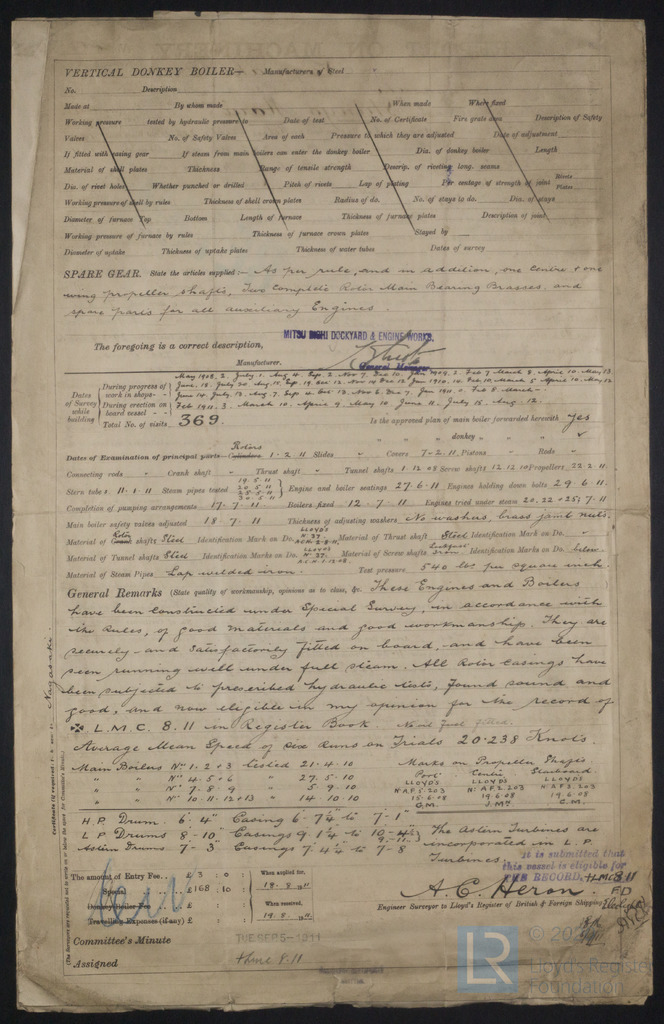 VERTICAL DONKEY BOILER— Manufacturers of Steel
No. Description
Made at By whom made When made Where fixed
Working pressure tested by hydraulic pressure to Date of test No. of Certificate Fire grate area Description of Safety
Valves No. of Safety Valves Area of each Pressure to which they are adjusted Date of adjustment
If fitted with easing gear If steam from main boilers can enter the donkey boiler Dia. of donkey boiler Length
Material of shell plates Thickness Range of tensile strength Descrip. of riveting long. seams
Dia. of rivet holes Whether punched or drilled Pitch of rivets Lap of plating Per centage of strength of joint Rivets Plates
Working pressure of shell by rules Thickness of shell crown plates Radius of do. No. of stays to do. Dia. of stays
Diameter of furnace Top Bottom Length of furnace Thickness of furnace plates Description of joint
Working pressure of furnace by rules Thickness of furnace crown plates Stayed by
Diameter of uptake Thickness of uptake plates Thickness of water tubes Dates of survey
SPARE GEAR. State the articles supplied:— As per rule, and in addition, one Centre & one
wing propeller shafts, Two Complete Rotor Main Bearing Brasses. and
spare parts for all auxiliary Engines.
MITSU BISHI DOCKYARD & ENGINE WORKS.
The foregoing is a correct description,
Manufacturer. General Manager
Dates of Survey while building
During progress of work in shops - -
During erection on board vessel - - -
Total No. of visits 369.
Is the approved plan of main boiler forwarded herewith Yes
" " " donkey " " "
Dates of Examination of principal parts— Cylinders Rotors 1-2-11 Slides " Covers 7-2-11 Pistons " Rods "
Connecting rods " Crank shaft " Thrust shaft " Tunnel shafts 1-12-08 Screw shafts 12.12.10 Propellers 22.2.11
Stern tube 11-1-11 Steam pipes tested 19.5.11 20.5.11 25.5.11 30.5.11 Engine and boiler seatings 27.6.11 Engines holding down bolts 29.6.11.
Completion of pumping arrangements 17-7-11 Boilers fixed 12.7.11 Engines tried under steam 20.22.25.7.11
Main boiler safety valves adjusted 18.7.11 Thickness of adjusting washers No washers, brass jamb nuts.
Material of Crank Rotor shafts Steel Identification Mark on Do. LLOYD'S Material of Thrust shaft Steel Identification Mark on Do. "
Material of Tunnel shafts Steel Identification Marks on Do. LLOYD'S Material of Screw shafts Identification Marks on Do. below
Material of Steam Pipes Lap welded iron. Test pressure 540 lbs per square inch.
General Remarks (State quality of workmanship, opinions as to class, &c. These Engines and Boilers
have been Constructed under Special Survey, in accordance with
the Rules, of good materials and good workmanship. They are
securely and satisfactorily fitted on board, and have been
seen running well under full steam. All Rotor Casings have
been subjected to prescribed hydraulic tests, found sound and
good, and now eligible in my opinion for the record of
✠ L.M.C. 8.11 in Register Book. No oil fuel fitted.
Average Mean Speed of six Runs on Trials 20.238 Knots.
Main Boilers Nº 1.2 & 3 tested 21.4.10 Marks on Propeller Shafts
" " Nº 4.5 & 6 " 27.5.10 Port Centre Starboard
" " Nº 7.8.9 " 5.9.10 LLOYD'S LLOYD'S LLOYD'S
" " Nº 10.11.12 & 13 " 14.10.10 15.6.08 19.6.08 19.6.08
H.P. Drum. 6'.4" Casing 6-7¼ to 7-1"
L P Drums 8'-10" Casings 9-1¼ to 10-4½ The Astern Turbines are
Astern Drums 7-3" Casings 7-4¼ to 7-8 incorporated in L.P. Turbines.
It is submitted that
this vessel is eligible for
THE RECORD. + LMC 8.11
F.D
The amount of Entry Fee.. £ 3 : 0 : When applied for,
Special £168 : 10 : 18.8.1911
Donkey Boiler Fee £ : : When received,
Travelling Expenses (if any) £ : : 19.8.1911
A. C. Heron.
Engineer Surveyor to Lloyd's Register of British & Foreign Shipping
Committee's Minute TUE SEP 5-1911
Assigned + Lmc 8.11
Certificate (if required) to be sent to Nagasaki.
(The Surveyors are requested not to write on or below the space for Committee's Minute.)
LR
Lloyd's Register
Foundation